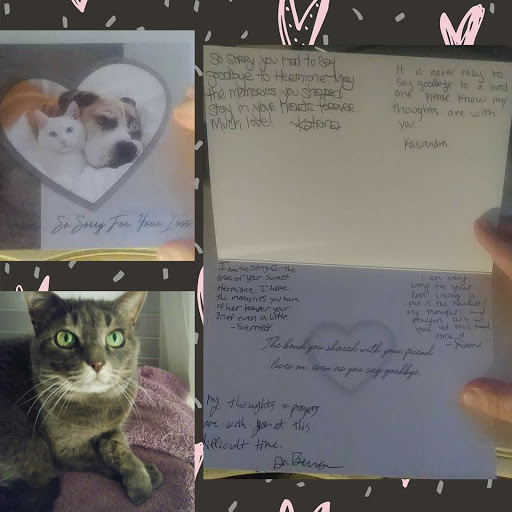 So Sorry For Your Loss
So sorry you had to say
goodbye to Hermione. May
the memories you shared
stay in your hearts forever
Much love! Katrina
It is never easy to
say goodbye to a loved
one. Please know my
thoughts are with
you.
Kasandra
I am so sorry for the
loss of your sweet
Hermione. I hope
the memories you have
of her temper your
grief even a little
I am very
sorry for your
loss. Losing a
pet is the hardest.
My thoughts and
prayers are w/
you at this hard
time.
The bond you shared with your friend
lives on even as you say goodbye.
My thoughts & prayers
are with you at this
difficult time.
Dr.